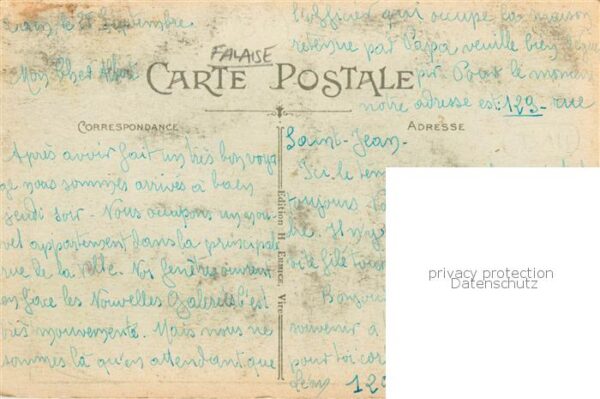 Caen, le 28 Septembre.
Mon Cher Albert
FALAISE
CARTE POSTALE
CORRESPONDANCE
ADRESSE
Après avoir fait un très bon voya
ge nous sommes arrivés à
jeudi soir. Nous occupons un nou-
vel appartement dans la principale
rue de la ville. Nos fenêtres ouvrent
en face les Nouvelles Galeries c'est
très mouvementé. Mais nous ne
sommes là qu'en attendant que
l'officier qui occupe la maison
retenue par Papa veuille bien
Pour le moment
notre adresse est: 123 - rue
Saint-Jean.
Ici le tem
toujours
Il n'y a
file tou
Bonjour
souvenir à
pour toi
Edition H. Ermice, Vire
privacy protection
Datenschutz